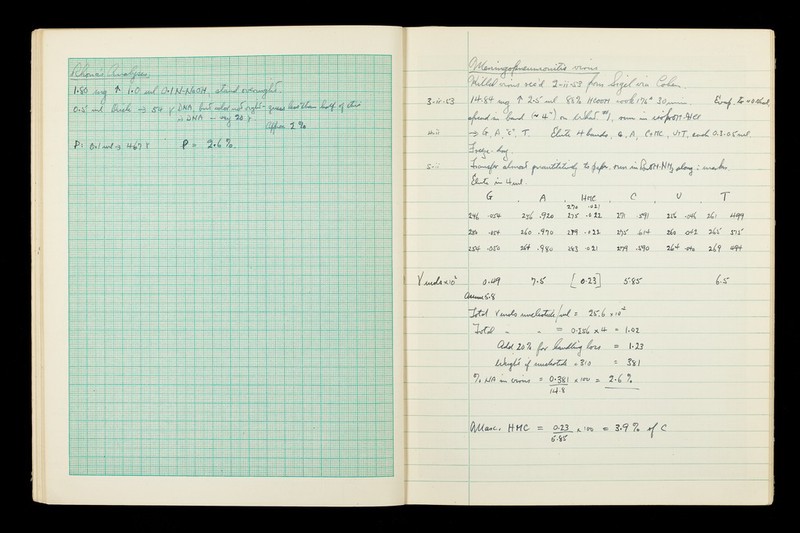 1.80 mg ↑ 1.0 ml 0.1 N-NaOH, stand overnight.
0.5 ml → 54 γ DNA, but color not right - guess less than half of this
is DNA — say 20 γ.
Approx 2%
P: 0.1 ml → 4.67 γ P = 2.6%.
Meningopneumonitis virus
Killed virus rec'd 2-ii-53 from Sigel via Cohen.
3-ii-53 14.84 mg. ↑ 2.5 ml 88% HCOOH 176° 30 Evap. to 0.04 ml,
spread in band (~ 4") on run in isoprOH-HCl
→ G, A, "C", T. Elute 4 bands, G, A, C+MC, U+T, each
Freeze-dry.
Transfer almost quantitatively to paper, run in BuOH-NH3 along markers.
Elute in 4 ml.
G A HMC C U T
270 .021
246 .054 256 .920 275 .022 271 .591 256 .046 261 .499
250 .054 260 .970 279 .022 275 .614 260 .042 265 .515
254 .050 264 .980 283 .021 279 .590 264 .040 269 .494
γ mols x 10² 0.49 7.5 [0.23] 5.85 6.5
Assume 5.8
Total γ mols nucleotide/ml = 25.6 x 10⁻²
Total " " = 0.256 x 4 = 1.02
Add 20% for handling loss = 1.23
Weight of nucleotide x 310 = 381
% NA in virus = 0.381 x 100 = 2.6%
14.8
Max. HMC = 0.23 x 100 = 3.9% of C
5.85